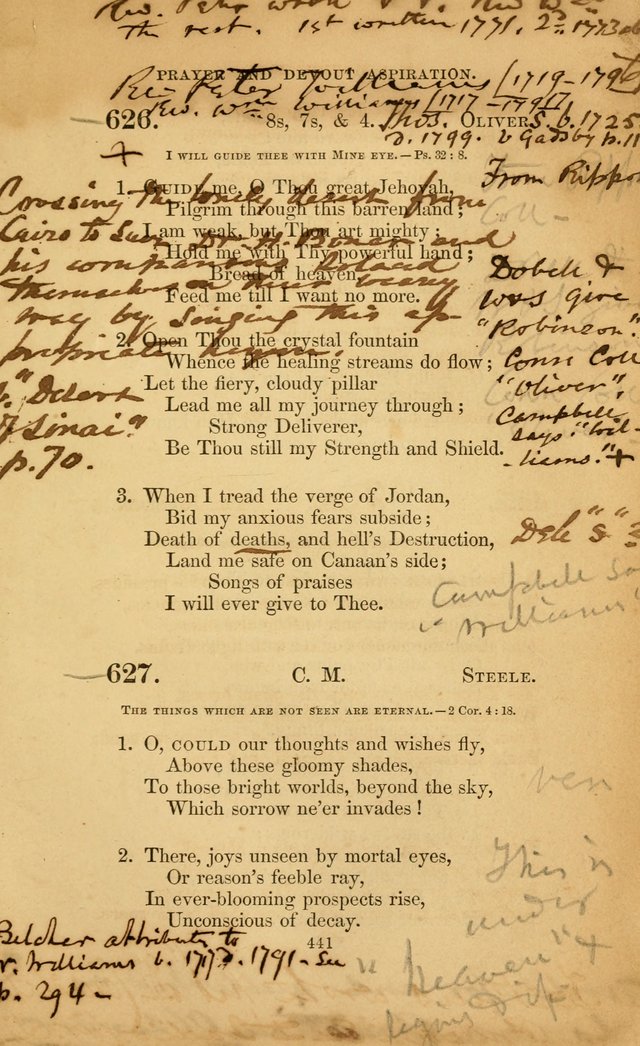 the rest. 1st written 1771. 2d 1773
PRAYER AND DEVOUT ASPIRATION.
Rev Peter Williams [1719-1796]
Rev. Wm Williams [1717-1791]
626. 8s, 7s, & 4. Thos. OLIVERS. b. 1725
D. 1799. v Gadsby p. 11
I WILL GUIDE THEE WITH MINE EYE.—Ps. 32 : 8.
From Rippon
Coll -
1. GUIDE me, O Thou great Jehovah,
Pilgrim through this barren land;
I am weak, but Thou art mighty;
Hold me with Thy powerful hand;
Bread of heaven,
Feed me till I want no more.
Crossing the lonely desert from
Cairo to Suez Dr. H. Bonar and
his companions
themselves on their weary
way by singing this ap-
propriate hymn.
v. "Desert
of Sinai."
p. 70.
Dobell &
give
"Robinson".
Conn Coll
"Oliver",
Campbell
says "Wil-
-liams." +
2. Open Thou the crystal fountain
Whence the healing streams do flow;
Let the fiery, cloudy pillar
Lead me all my journey through;
Strong Deliverer,
Be Thou still my Strength and Shield.
3. When I tread the verge of Jordan,
Bid my anxious fears subside;
Death of deaths, and hell's Destruction,
Land me safe on Canaan's side;
Songs of praises
I will ever give to Thee.
Dele "s"
Campbell
"Williams"
627. C. M. STEELE.
THE THINGS WHICH ARE NOT SEEN ARE ETERNAL.—2 Cor. 4 : 18.
1. O, COULD our thoughts and wishes fly,
Above these gloomy shades,
To those bright worlds, beyond the sky,
Which sorrow ne'er invades!
2. There, joys unseen by mortal eyes,
Or reason's feeble ray,
In ever-blooming prospects rise,
Unconscious of decay.
This is
under
"Heaven" +
begins
441
Belcher attributes to
W. Williams b. 1717 D. 1791 - See
p. 294 -